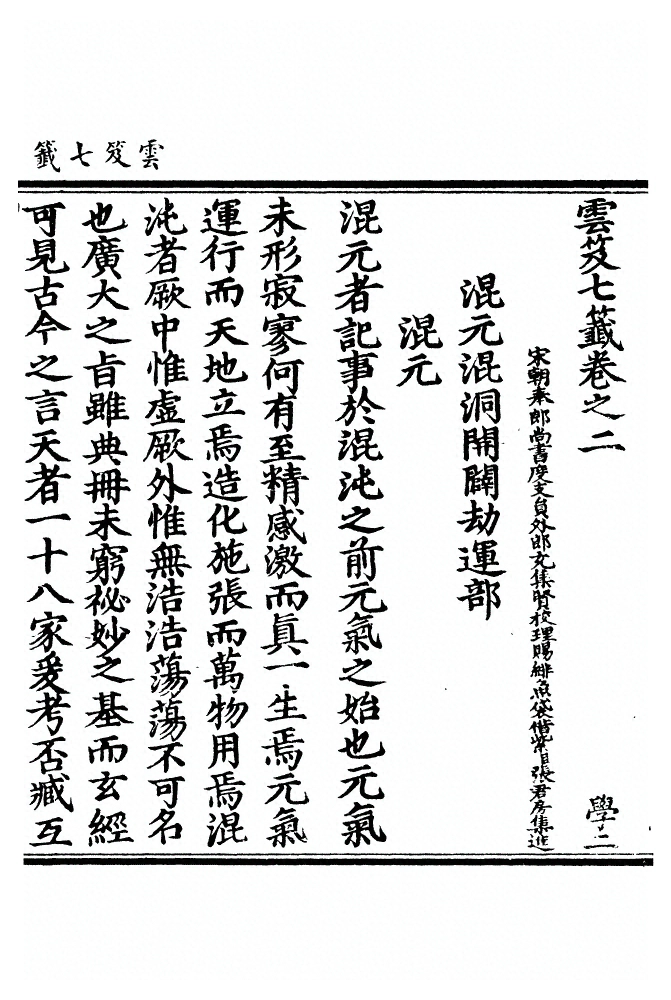 雲笈七籤
雲笈七籤卷之二
學二
宋朝奉郎尚書度支員外郎充集賢校理賜緋魚袋借紫臣張君房集進
混元混洞開闢劫運部
混元
混元者記事於混沌之前元氣之始也元氣
未形寂寥何有至精感激而眞一生焉元氣
運行而天地立焉造化施張而萬物用焉混
沌者厥中惟虛厥外惟無浩浩蕩蕩不可名
也廣大之旨雖典冊未窮祕妙之基而玄經
可見古今之言天者一十八家爰考否臧互